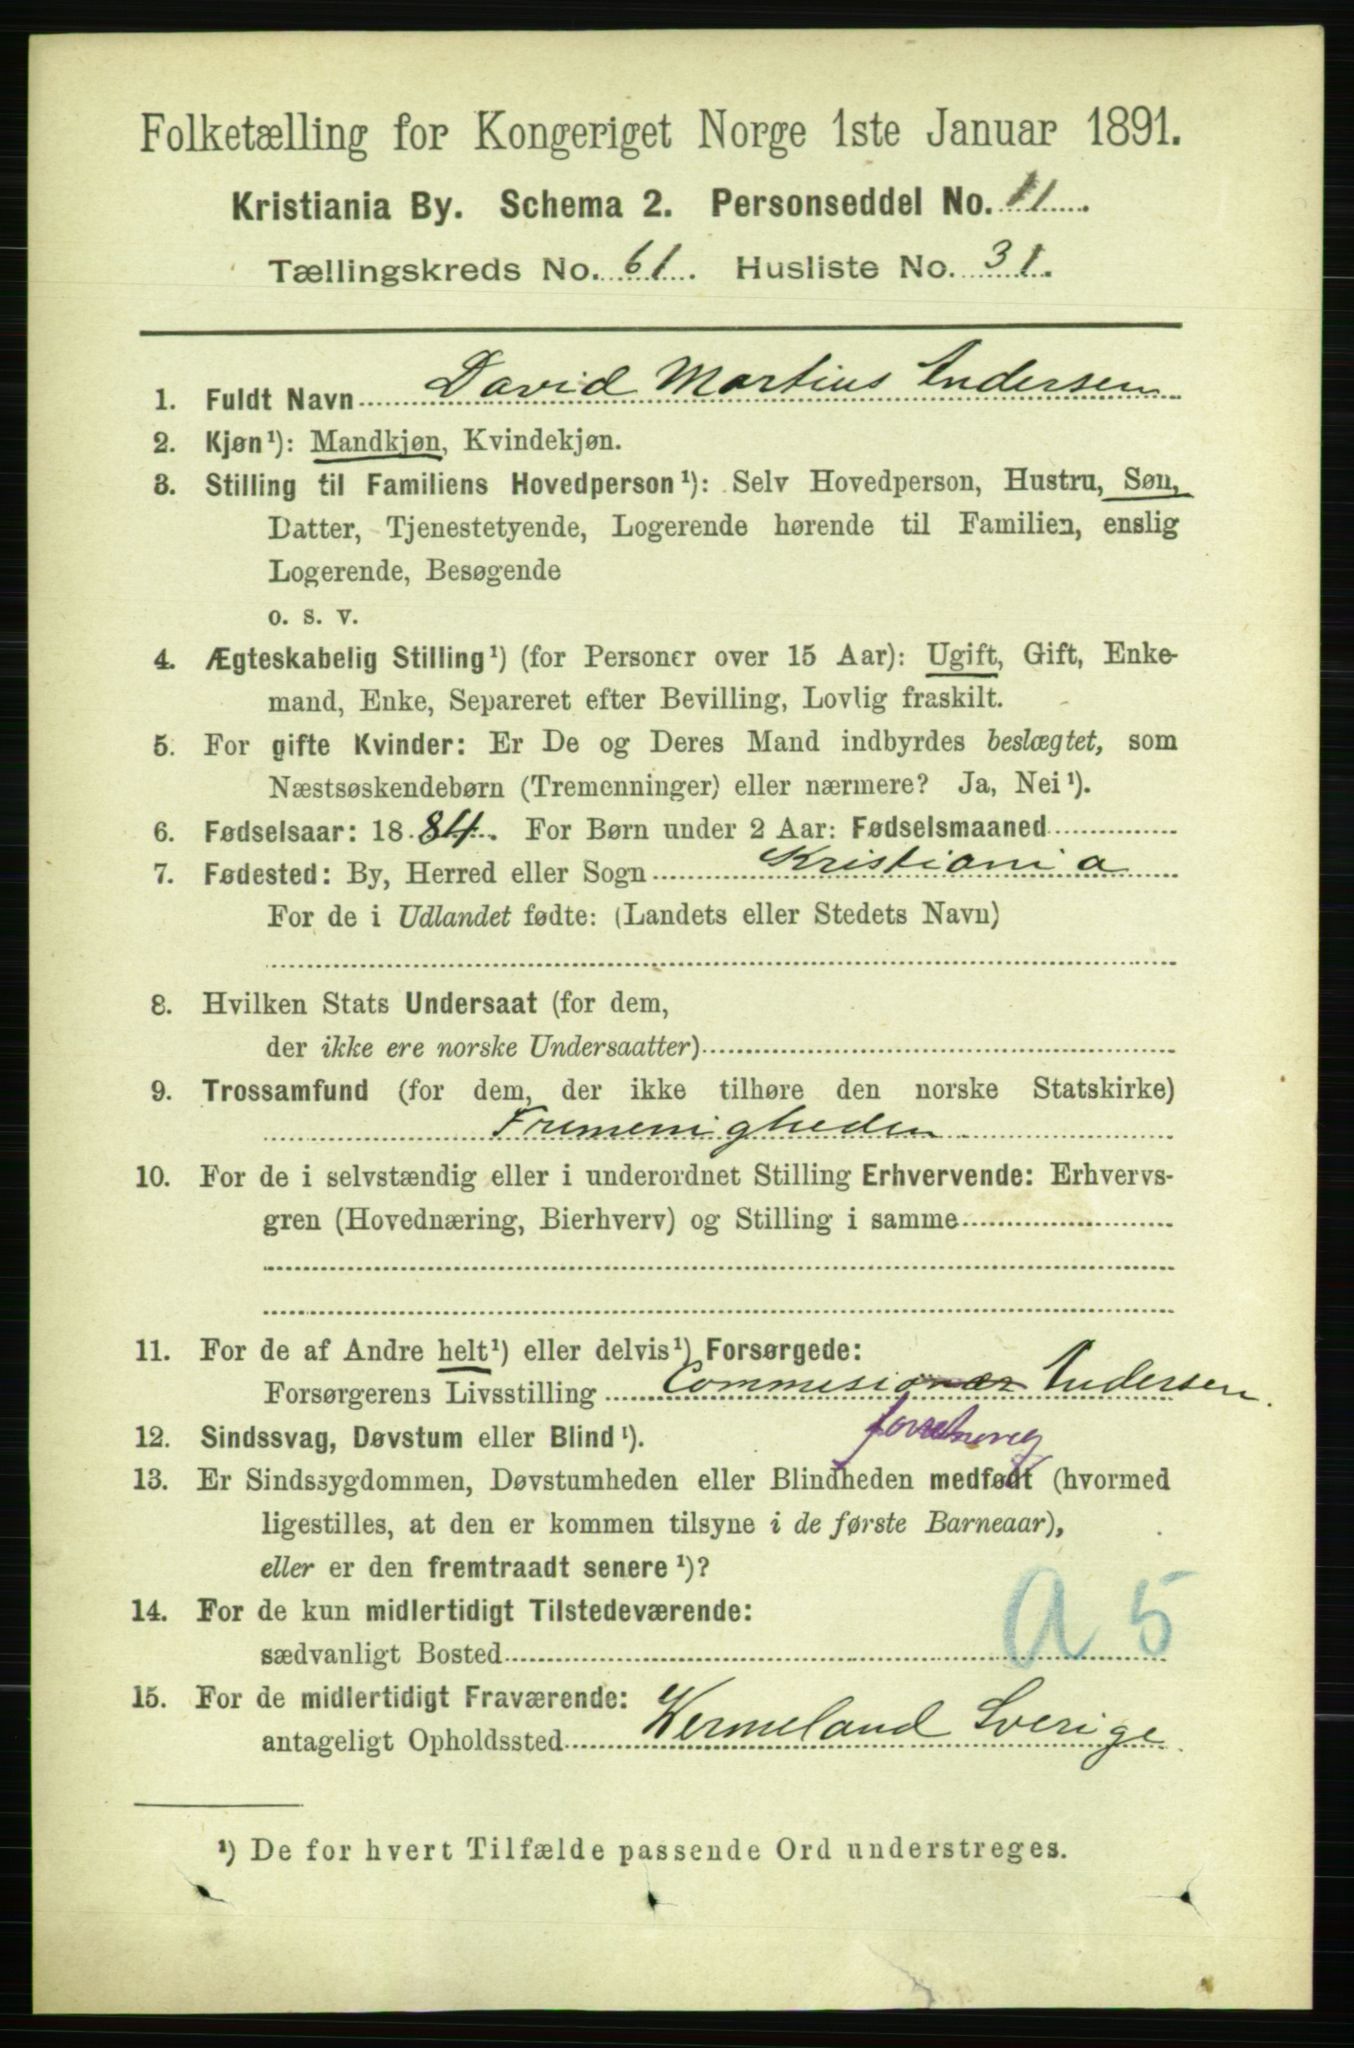 Folketælling for Kongeriget Norge 1ste Januar 1891.
Kristiania By. Schema 2. Personseddel No. 11.
Tællingskreds No. 61. Husliste No. 31.
1. Fuldt Navn David Martius Andersen
2. Kjøn¹): Mandkjøn, Kvindekjøn.
3. Stilling til Familiens Hovedperson¹): Selv Hovedperson, Hustru, Søn,
Datter, Tjenestetyende, Logerende hørende til Familien, enslig
Logerende, Besøgende
o. s. v.
4. Ægteskabelig Stilling¹) (for Personer over 15 Aar): Ugift, Gift, Enke-
mand, Enke, Separeret efter Bevilling, Lovlig fraskilt.
5. For gifte Kvinder: Er De og Deres Mand indbyrdes beslægtet, som
Næstsøskendebørn (Tremenninger) eller nærmere? Ja, Nei¹).
6. Fødselsaar: 1884. For Børn under 2 Aar: Fødselsmaaned
7. Fødested: By, Herred eller Sogn Kristiania
For de i Udlandet fødte: (Landets eller Stedets Navn)
8. Hvilken Stats Undersaat (for dem,
der ikke ere norske Undersaatter)
9. Trossamfund (for dem, der ikke tilhøre den norske Statskirke)
Frimenigheden
10. For de i selvstændig eller i underordnet Stilling Erhvervende: Erhvervs-
gren (Hovednæring, Bierhverv) og Stilling i samme
11. For de af Andre helt¹) eller delvis¹) Forsørgede:
Forsørgerens Livsstilling Commesionær Andersen.
12. Sindssvag, Døvstum eller Blind¹).
13. Er Sindssygdommen, Døvstumheden eller Blindheden medfødt (hvormed
ligestilles, at den er kommen tilsyne i de første Barneaar),
eller er den fremtraadt senere¹)?
14. For de kun midlertidigt Tilstedeværende:
sædvanligt Bosted
a 5
15. For de midlertidigt Fraværende:
antageligt Opholdssted Vermeland Sverige.
¹) De for hvert Tilfælde passende Ord understreges.